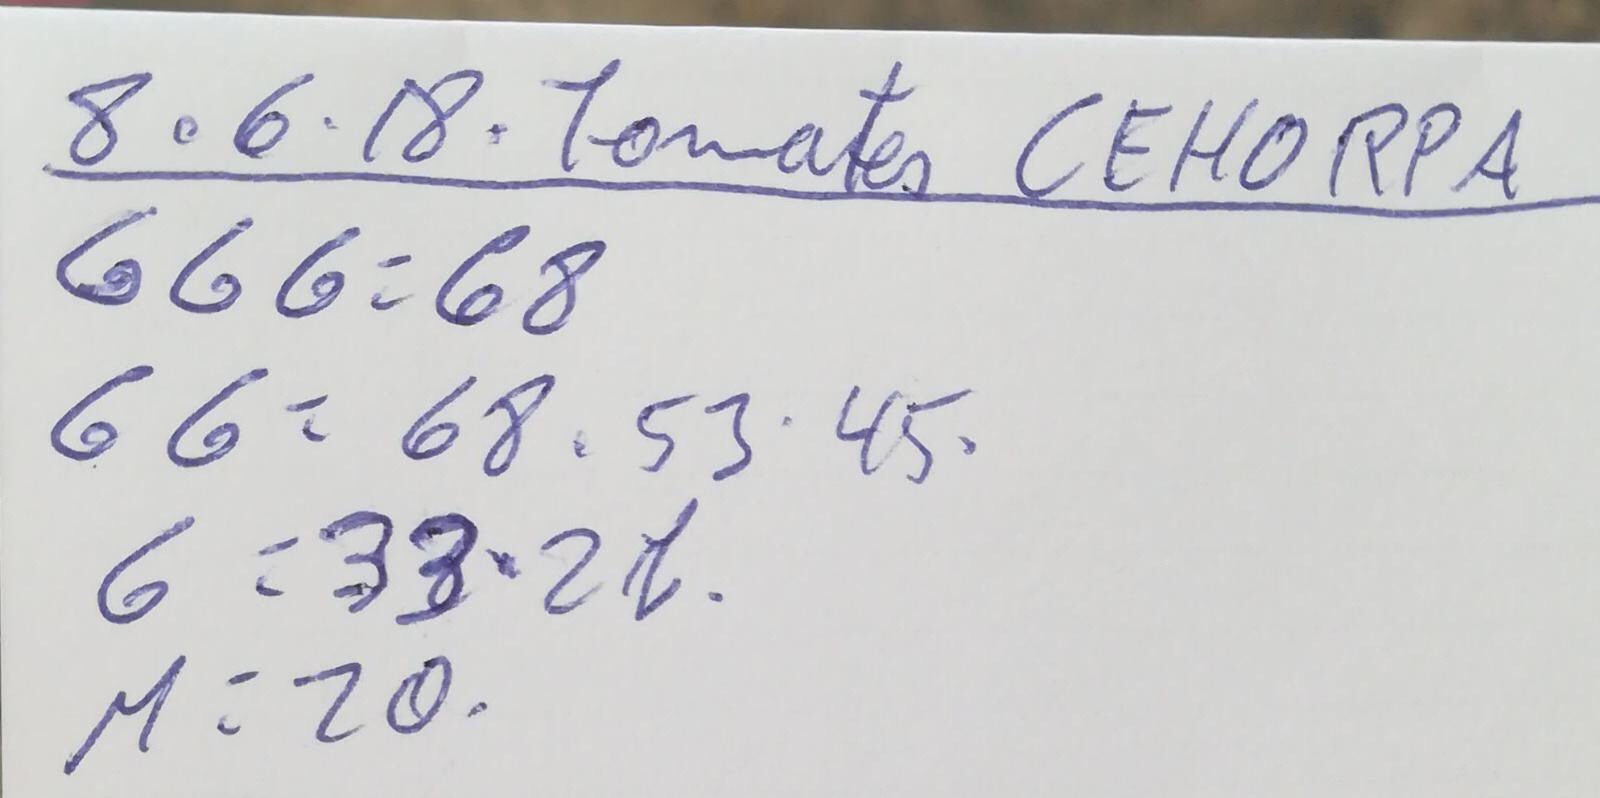 8.6.18. Tomates CEHORPA
GGG=68
GG= 68.53.45.
G =33.21.
M=20.